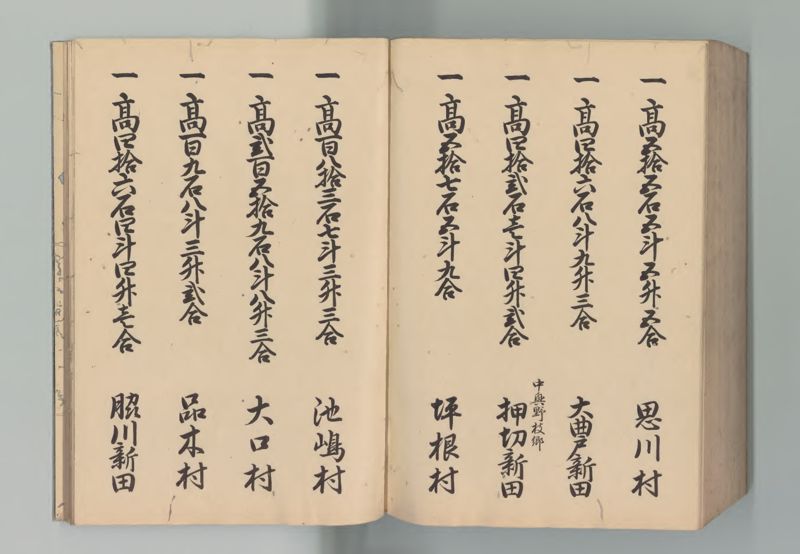 一 高五拾五石五斗五升五合 思川村
一 高四拾六石八斗九升三合 大曲戸新田
一 高四拾弐石壱斗四升弐合 中奥野枝郷 押切新田
一 高五拾七石五斗九合 坪根村
一 高百八拾三石七斗三升三合 池嶋村
一 高弐百五拾九石八斗八升三合 大口村
一 高百九石八斗三升弐合 品木村
一 高四拾六石四斗四升壱合 脇川新田